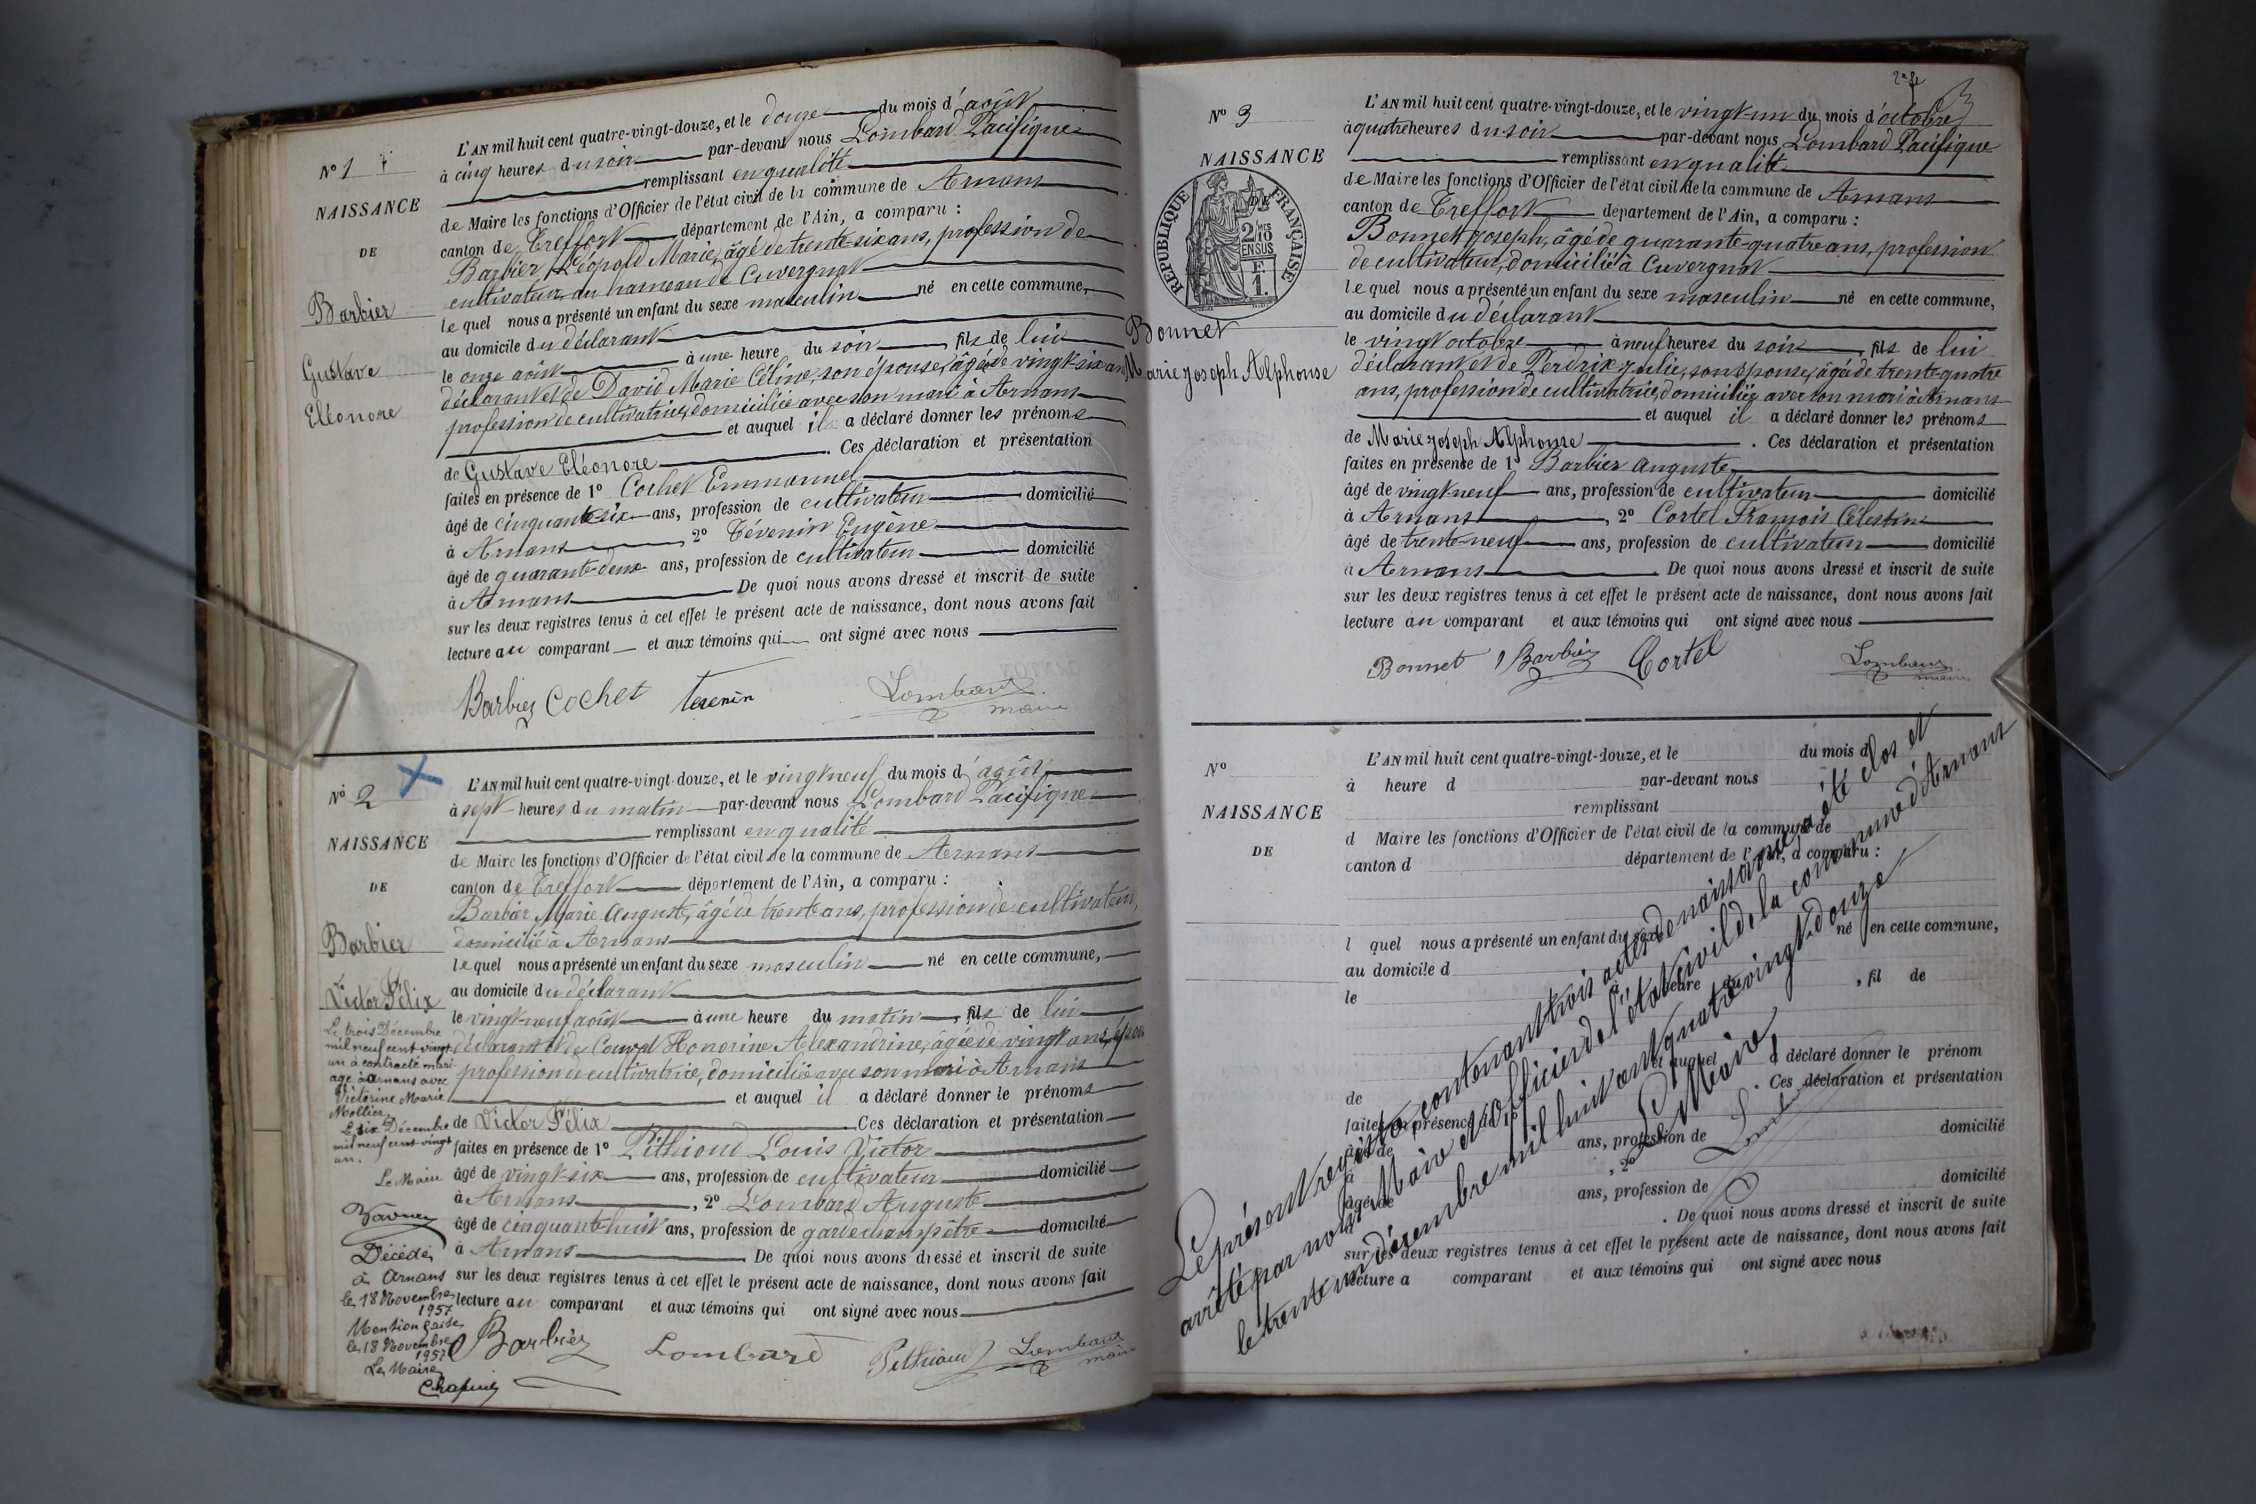 N° 1
NAISSANCE
DE
Barbier
Gustave
Eléonore
L'AN mil huit cent quatre-vingt-douze, et le douze du mois d'août
à cinq heures du soir par-devant nous Lombard Pacifique
remplissant en qualité
de Maire les fonctions d'Officier de l'état civil de la commune de Arnans
canton de Treffort département de l'Ain, a comparu :
Barbier Léopold Marie, âgé de trente-six ans, profession de
cultivateur, au hameau de Cuvergnat
le quel nous a présenté un enfant du sexe masculin né en cette commune,
au domicile du déclarant
le onze août à une heure du soir, fils de lui
déclarant et de David Marie Céline, son épouse, âgée de vingt-six ans
profession de cultivatrice, domiciliée avec son mari à Arnans
et auquel il a déclaré donner les prénoms
de Gustave Eléonore. Ces déclaration et présentation
faites en présence de 1° Cochet Emmanuel
âgé de cinquante-six ans, profession de cultivateur domicilié
à Arnans, 2° Tévenin Eugène
âgé de quarante-deux ans, profession de cultivateur domicilié
à Arnans De quoi nous avons dressé et inscrit de suite
sur les deux registres tenus à cet effet le présent acte de naissance, dont nous avons fait
lecture au comparant et aux témoins qui ont signé avec nous
Barbier Cochet Tevenin Lombard
maire
N° 2
NAISSANCE
DE
Barbier
Victor Félix
Le trois Décembre
mil neuf cent vingt
un à contracté mari-
age à Arnans avec
Victorine Marie
Mollier
Le six Décembre
mil neuf cent vingt
un.
Le Maire
Décédé
à Arnans
le 18 Novembre
1957
Mention faite
le 18 Novembre
1957
Le Maire
L'AN mil huit cent quatre-vingt-douze, et le vingt neuf du mois d'août
à sept heures du matin par-devant nous Lombard Pacifique
remplissant en qualité
de Maire les fonctions d'Officier de l'état civil de la commune de Arnans
canton de Treffort département de l'Ain, a comparu :
Barbier Marie Auguste, âgé de trente ans, profession de cultivateur,
domicilié à Arnans
le quel nous a présenté un enfant du sexe masculin né en cette commune,
au domicile du déclarant
le vingt-neuf août à une heure du matin, fils de lui
déclarant et de Honorine Alexandrine, âgée de vingt ans,
profession de cultivatrice, domiciliée avec son mari à Arnans
et auquel il a déclaré donner le prénoms
de Victor Félix. Ces déclaration et présentation
faites en présence de 1° Pithioud Louis Victor
âgé de vingt-six ans, profession de cultivateur domicilié
à Arnans, 2° Lombard Auguste
âgé de cinquante-huit ans, profession de garde champêtre domicilié
à Arnans. De quoi nous avons dressé et inscrit de suite
sur les deux registres tenus à cet effet le présent acte de naissance, dont nous avons fait
lecture au comparant et aux témoins qui ont signé avec nous
Barbier Lombard Pithioud Lombard
maire
3
N° 3
NAISSANCE
DE
RÉPUBLIQUE FRANÇAISE
2/10
EN SUS
F.
1.
Bonnet
Marie Joseph Alphonse
L'AN mil huit cent quatre-vingt-douze, et le vingt-un du mois d'octobre
à quatre heures du soir par-devant nous Lombard Pacifique
remplissant en qualité
de Maire les fonctions d'Officier de l'état civil de la commune de Arnans
canton de Treffort département de l'Ain, a comparu :
Bonnet Joseph, âgé de quarante-quatre ans, profession
de cultivateur, domicilié à Cuvergnat
le quel nous a présenté un enfant du sexe masculin né en cette commune,
au domicile du déclarant
le vingt octobre à neuf heures du soir, fils de lui
déclarant et de Perdrix Julie, son épouse, âgée de trente-quatre
ans, profession de cultivatrice, domiciliée avec son mari à Arnans
et auquel il a déclaré donner les prénoms
de Marie Joseph Alphonse. Ces déclaration et présentation
faites en présence de 1° Barbier Auguste
âgé de vingt neuf ans, profession de cultivateur domicilié
à Arnans, 2° Cortel François Célestin
âgé de trente-neuf ans, profession de cultivateur domicilié
à Arnans. De quoi nous avons dressé et inscrit de suite
sur les deux registres tenus à cet effet le présent acte de naissance, dont nous avons fait
lecture au comparant et aux témoins qui ont signé avec nous
Bonnet Barbier Cortel Lombard
maire
N°
NAISSANCE
DE
L'AN mil huit cent quatre-vingt-douze, et le du mois d
à heure d par-devant nous
remplissant
d Maire les fonctions d'Officier de l'état civil de la commune de
canton d département de l'Ain, a comparu :
l quel nous a présenté un enfant du sexe né en cette commune,
au domicile d
le heure du , fil de
et auquel a déclaré donner le prénom
de . Ces déclaration et présentation
faites en présence de 1°
âgé de ans, profession de domicilié
à , 2°
âgé de ans, profession de domicilié
à . De quoi nous avons dressé et inscrit de suite
sur les deux registres tenus à cet effet le présent acte de naissance, dont nous avons fait
lecture a comparant et aux témoins qui ont signé avec nous
Le présent registre, contenant trois actes de naissance, a été clos et
arrêté par nous Maire et officier de l'état civil de la commune d'Arnans
le trente un décembre mil huit cent quatre vingt-douze
Le Maire,
Lombard